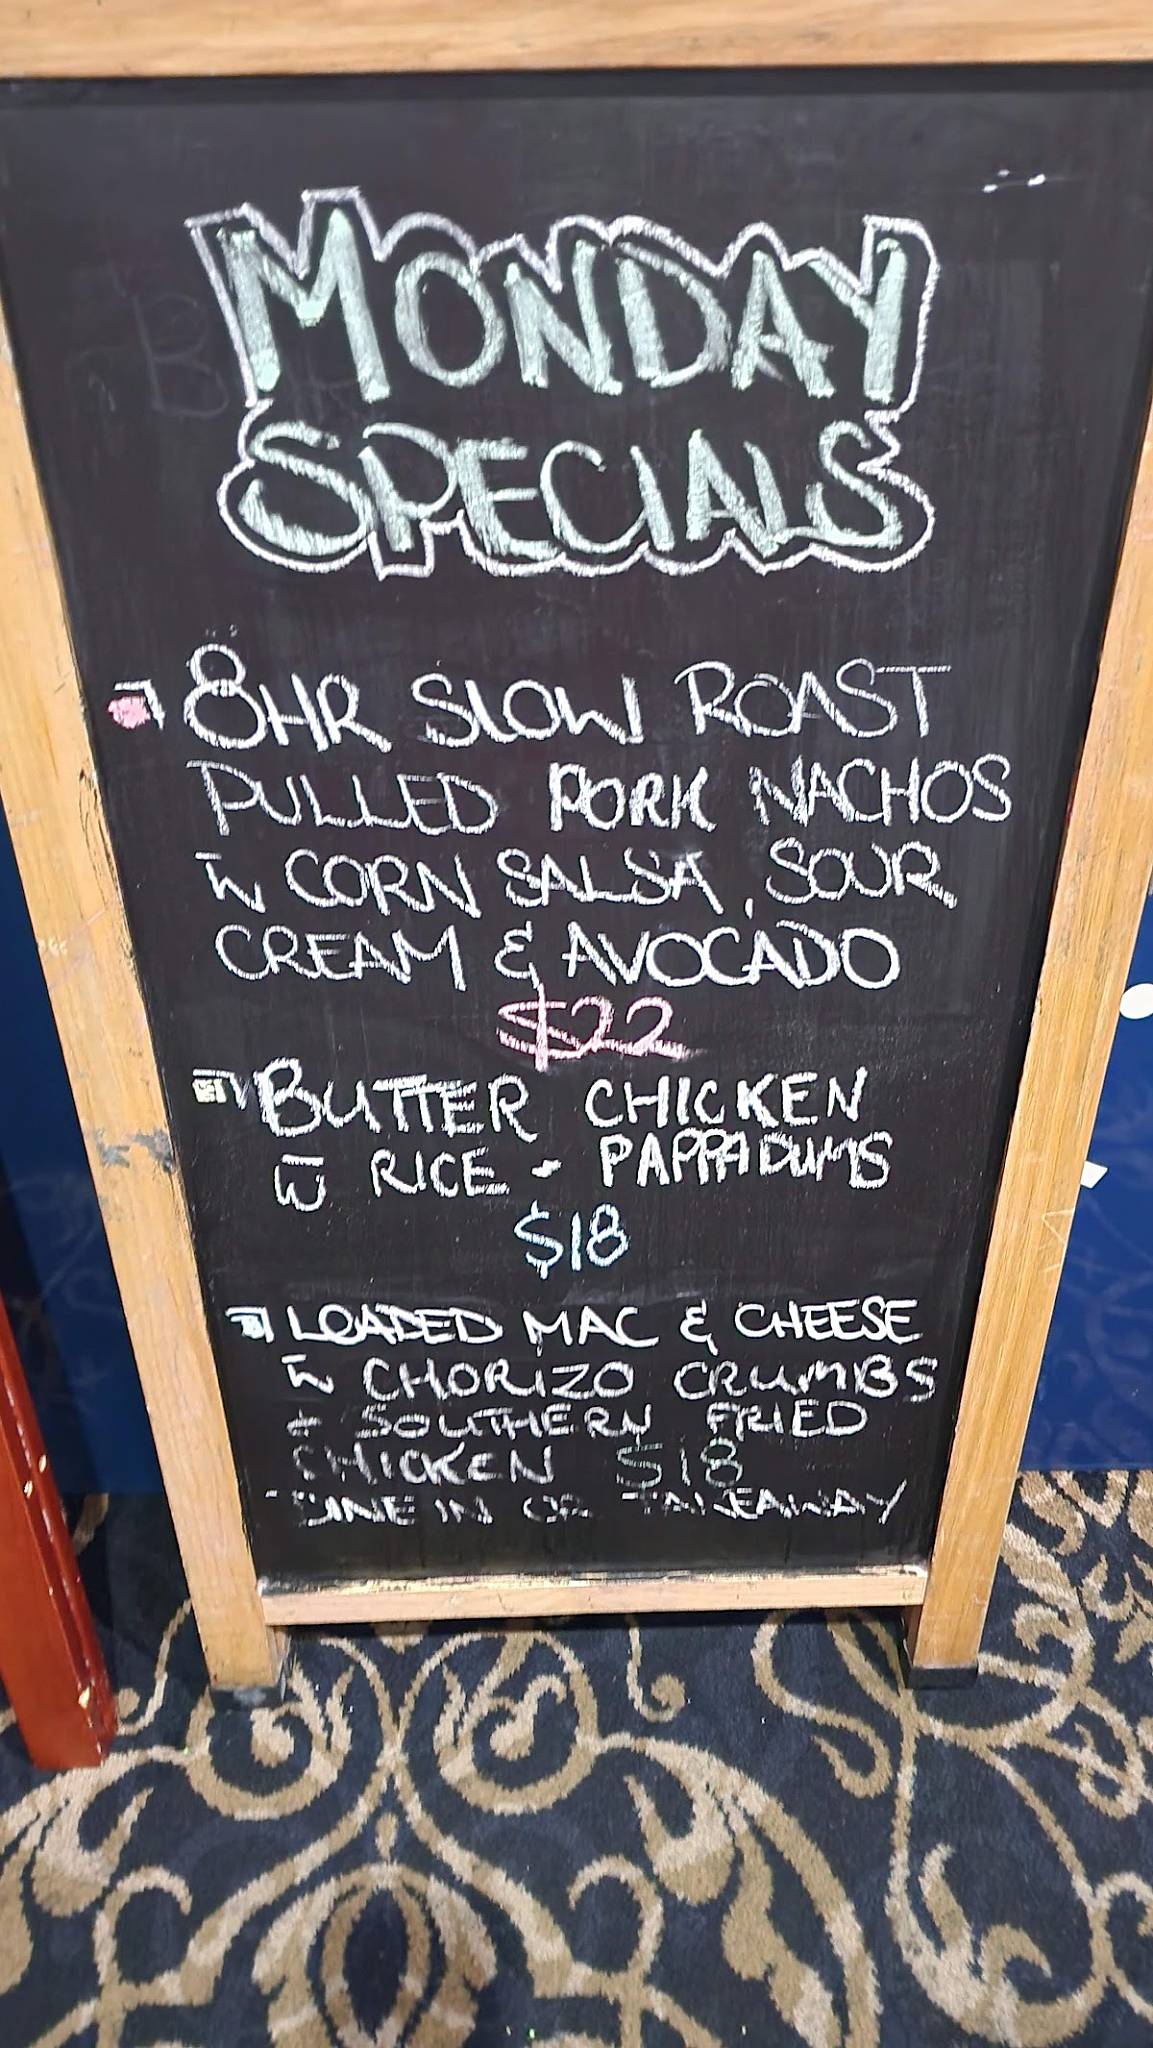 MONDAY
SPECIALS
8HR SLOW ROAST
PULLED PORK NACHOS
W CORN SALSA, SOUR
CREAM & AVOCADO
$22
BUTTER CHICKEN
W RICE - PAPPADUMS
$18
LOADED MAC & CHEESE
W CHORIZO CRUMBS
+ SOUTHERN FRIED
CHICKEN $18
DINE IN OR TAKEAWAY